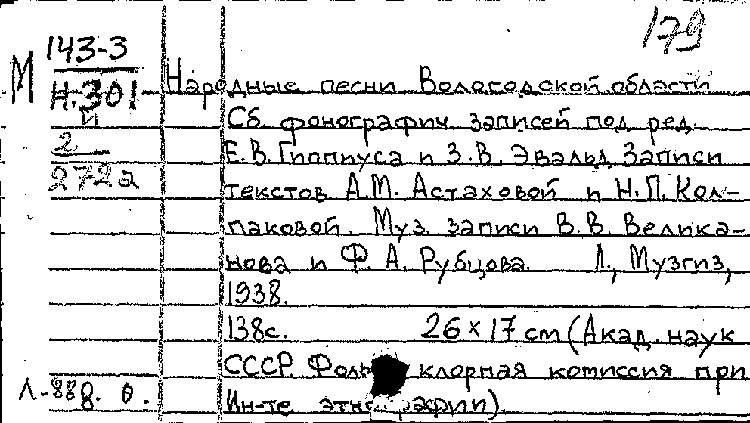 179
М 143-3
Н.301 Народные песни Вологодской области
й
Сб. фонографич. записей под ред.
2
Е.В. Гиппиуса и З.В. Эвальд. Записи
272а
текстов А.М. Астаховой и Н.П. Кол-
паковой. Муз. записи В.В. Велика-
нова и Ф.А. Рубцова. Л., Музгиз,
1938.
138с. 26×17 см (Акад. наук
СССР. Фольклорная комиссия при
Л-888. о. Ин-те этнографии)